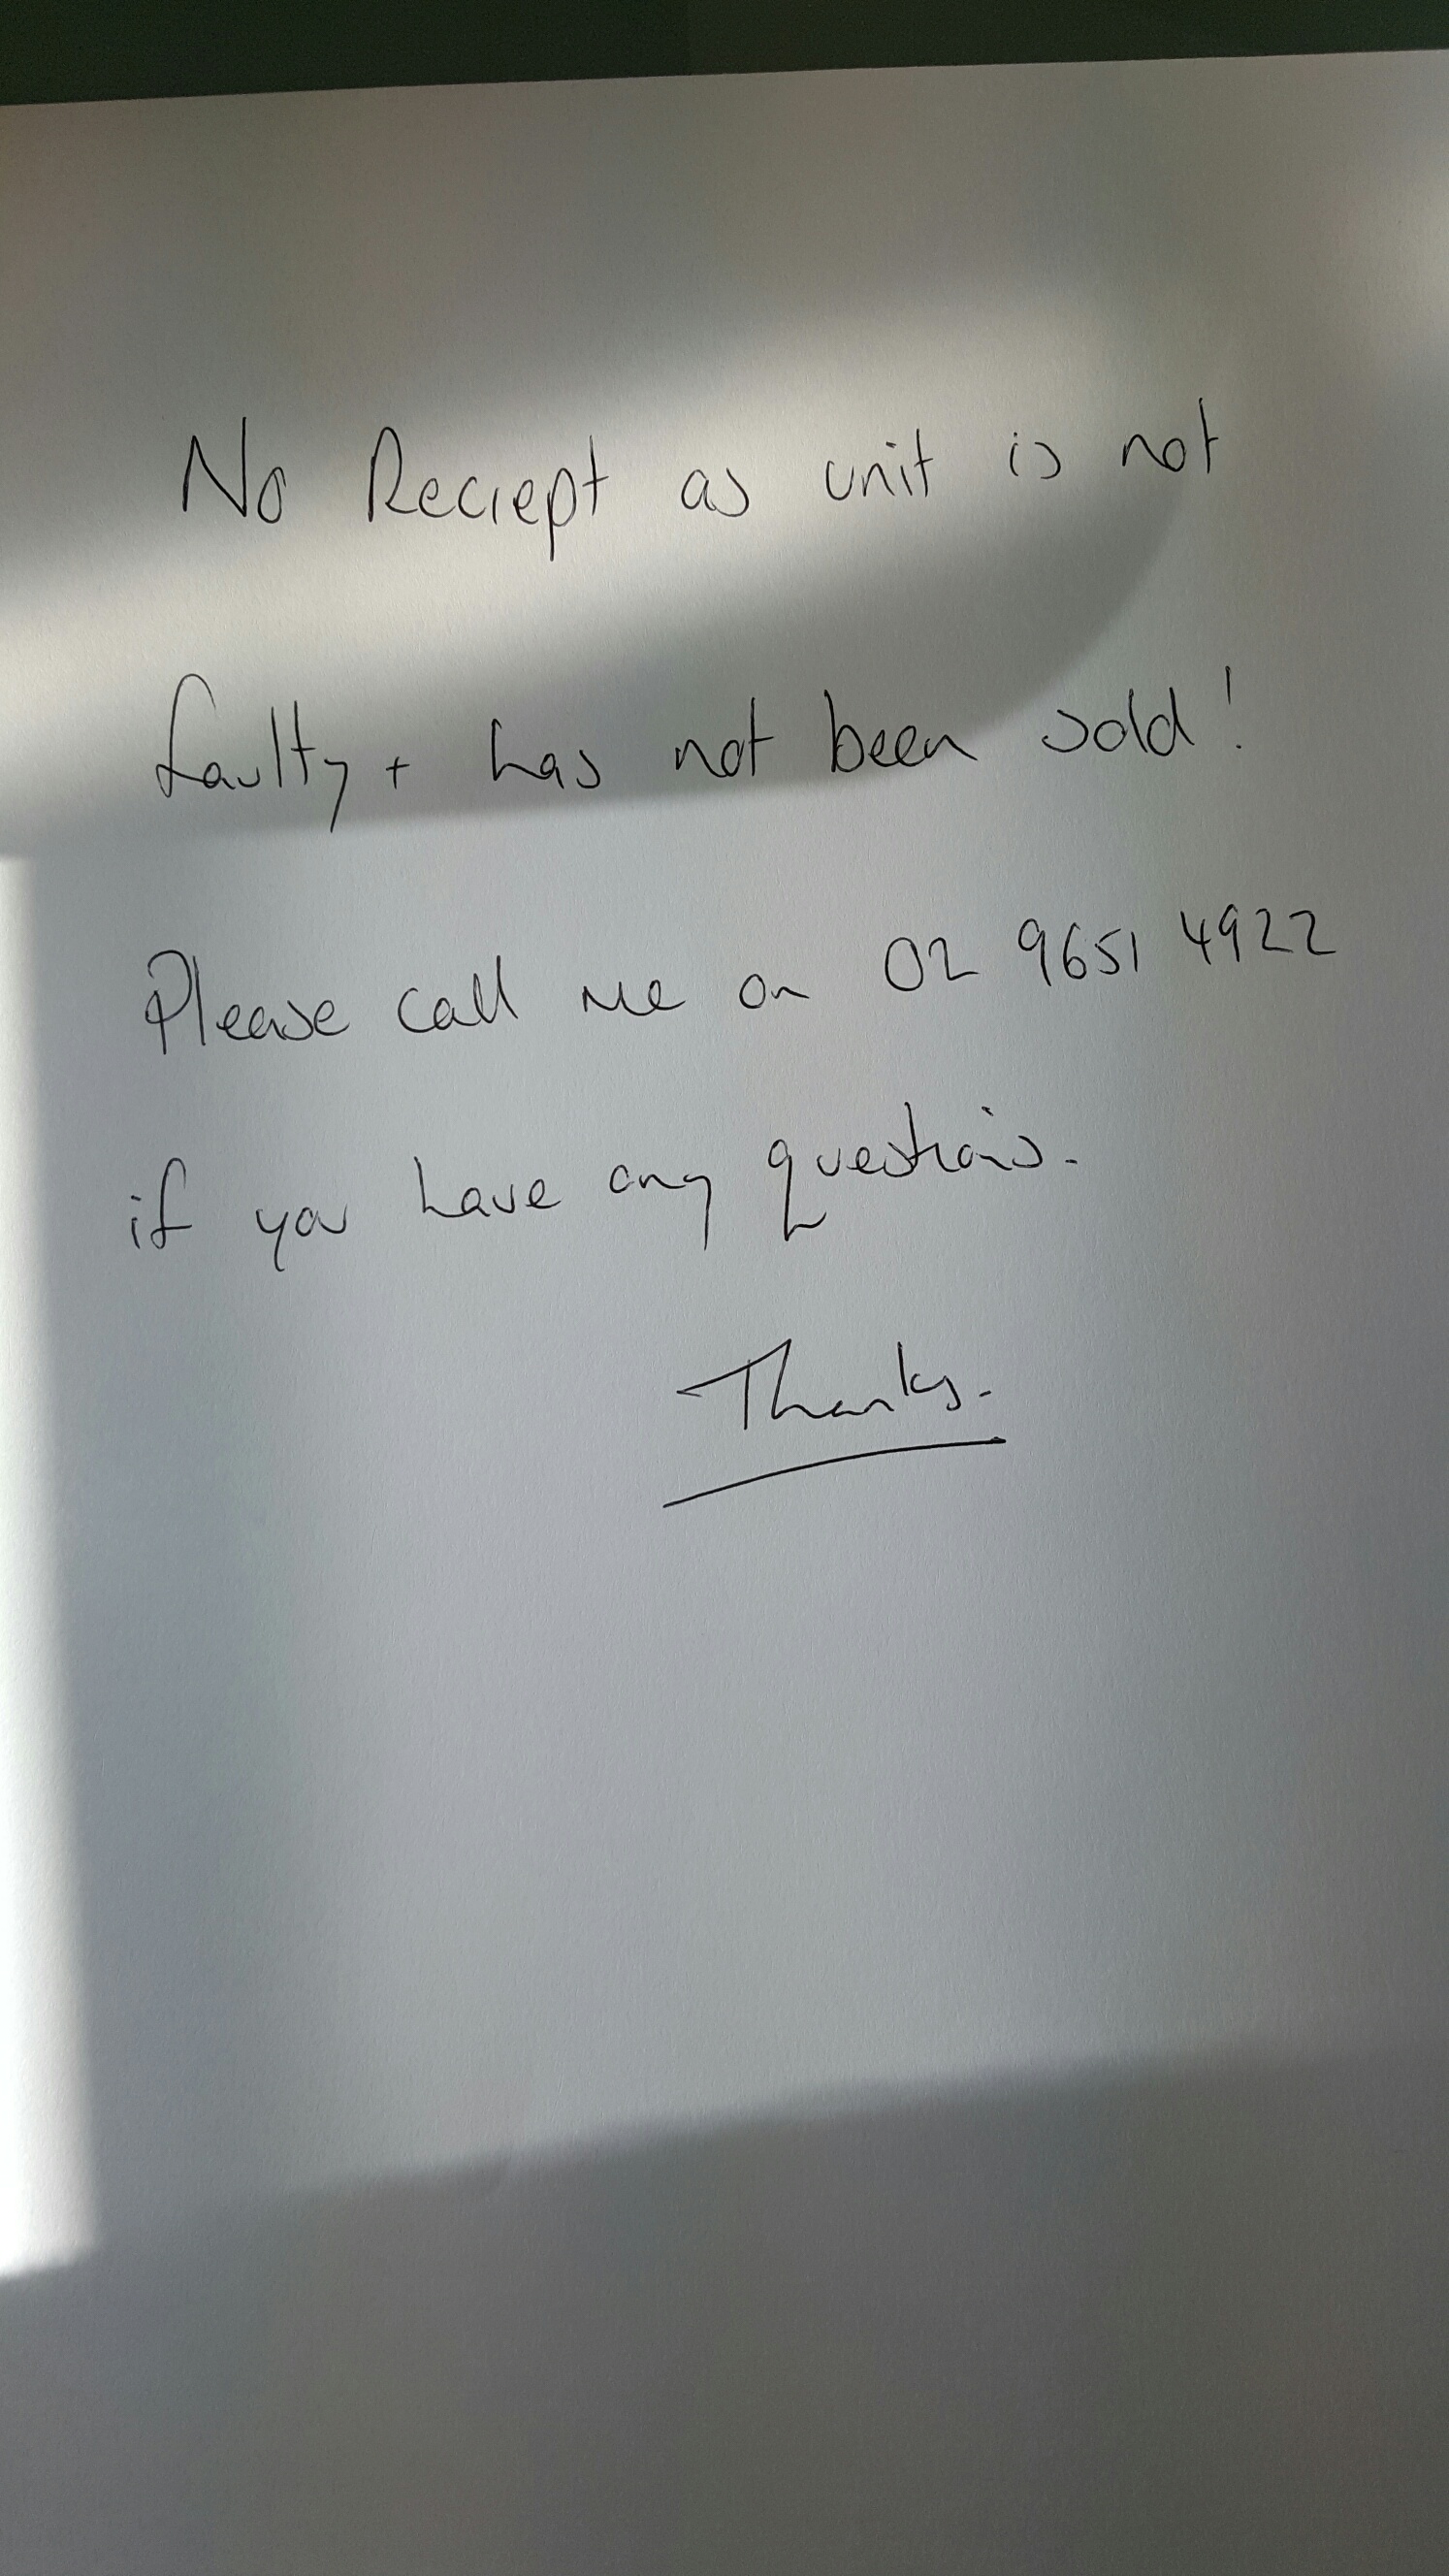 No Reciept as unit is not
faulty + has not been sold!
Please call me on 02 9651 4922
if you have any questions.
Thanks.